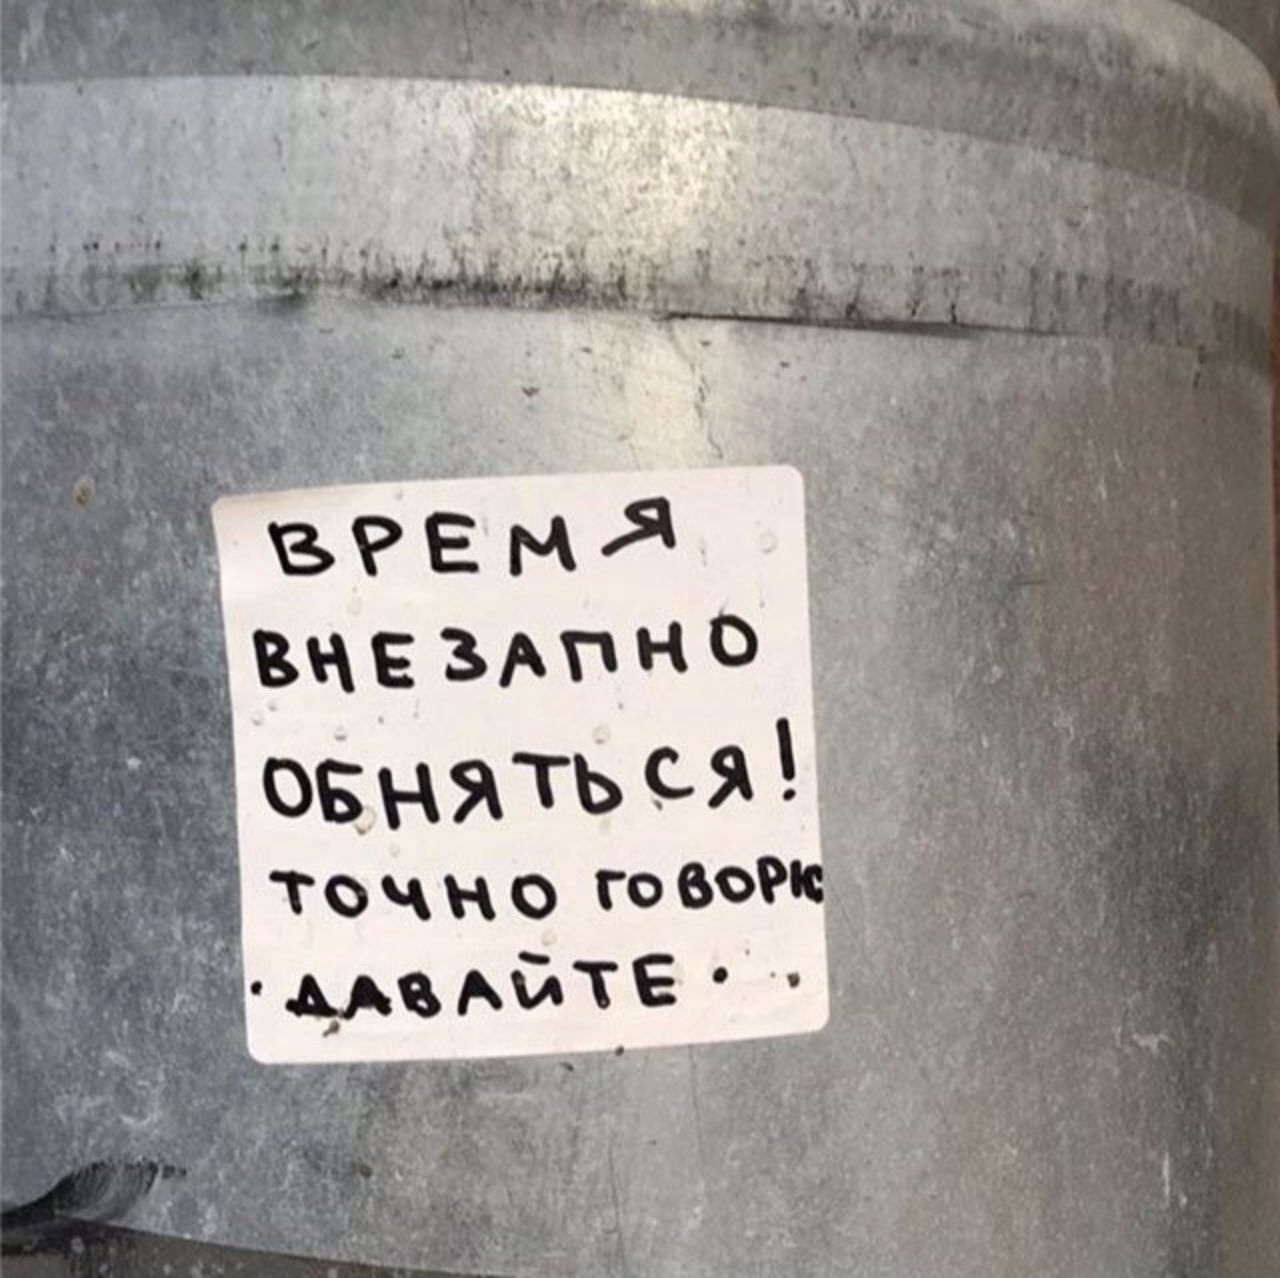 ВРЕМЯ
ВНЕЗАПНО
ОБНЯТЬСЯ!
ТОЧНО ГОВОРЮ
· ДАВАЙТЕ ·